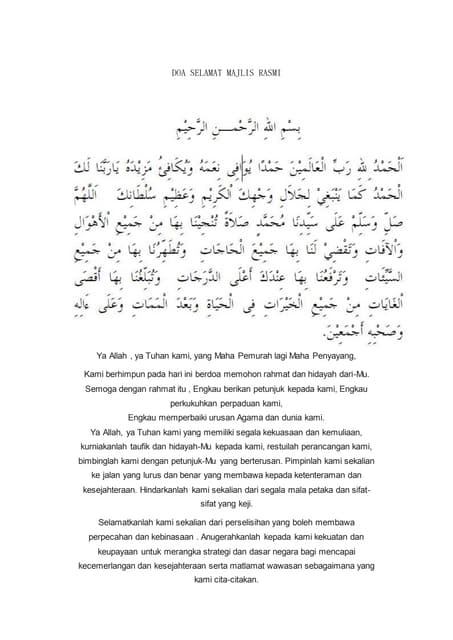 DOA SELAMAT MAJLIS RASMI
بِسْمِ اللهِ الرَّحْمـــنِ الرَّحِيْمِ
اَلْحَمْدُ لِلهِ رَبِّ الْعَالَمِيْنَ حَمْدًا يُوَافِى نِعَمَهُ وَيُكَافِئُ مَزِيْدَهُ يَارَبَّنَا لَكَ
الْحَمْدُ كَمَا يَنْبَغِيْ لِجَلَالِ وَجْهِكَ الْكَرِيْمِ وَعَظِيْمِ سُلْطَانِكَ اَللَّهُمَّ
صَلِّ وَسَلِّمْ عَلَى سَيِّدِنَا مُحَمَّدٍ صَلاَةً تُنْجِيْنَا بِهَا مِنْ جَمِيْعِ الْأَهْوَالِ
وَالْآفَاتِ وَتَقْضِيْ لَنَا بِهَا جَمِيْعَ الْحَاجَاتِ وَتُطَهِّرُنَا بِهَا مِنْ جَمِيْعِ
السَّيِّئَاتِ وَتَرْفَعُنَا بِهَا عِنْدَكَ أَعْلَى الدَّرَجَاتِ وَتُبَلِّغُنَا بِهَا أَقْصَى
الْغَايَاتِ مِنْ جَمِيْعِ الْخَيْرَاتِ فِى الْحَيَاةِ وَبَعْدَ الْمَمَاتِ وَعَلَى ءَالِهِ
وَصَحْبِهِ أَجْمَعِيْنَ.
Ya Allah , ya Tuhan kami, yang Maha Pemurah lagi Maha Penyayang,
Kami berhimpun pada hari ini berdoa memohon rahmat dan hidayah dari-Mu.
Semoga dengan rahmat itu , Engkau berikan petunjuk kepada kami, Engkau
perkukuhkan perpaduan kami,
Engkau memperbaiki urusan Agama dan dunia kami.
Ya Allah, ya Tuhan kami yang memiliki segala kekuasaan dan kemuliaan,
kurniakanlah taufik dan hidayah-Mu kepada kami, restuilah perancangan kami,
bimbinglah kami dengan petunjuk-Mu yang berterusan. Pimpinlah kami sekalian
ke jalan yang lurus dan benar yang membawa kepada ketenteraman dan
kesejahteraan. Hindarkanlah kami sekalian dari segala mala petaka dan sifat-
sifat yang keji.
Selamatkanlah kami sekalian dari perselisihan yang boleh membawa
perpecahan dan kebinasaan . Anugerahkanlah kepada kami kekuatan dan
keupayaan untuk merangka strategi dan dasar negara bagi mencapai
kecemerlangan dan kesejahteraan serta matlamat wawasan sebagaimana yang
kami cita-citakan.